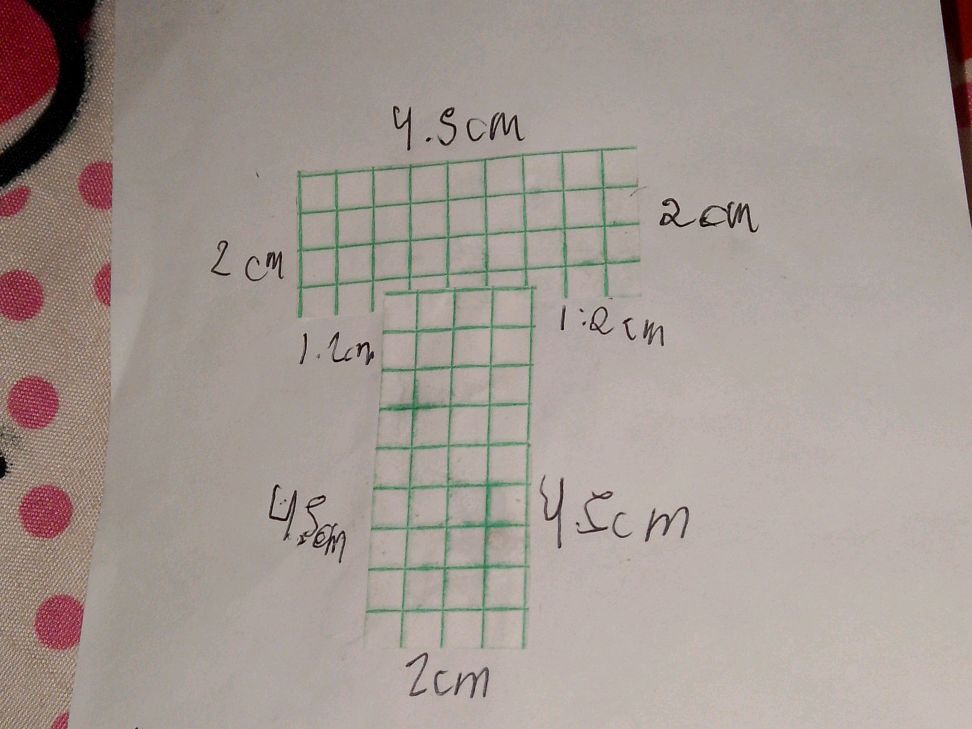 4.5cm
2cm
2cm
1.2cm
1.2cm
4.5cm
4.5cm
2cm